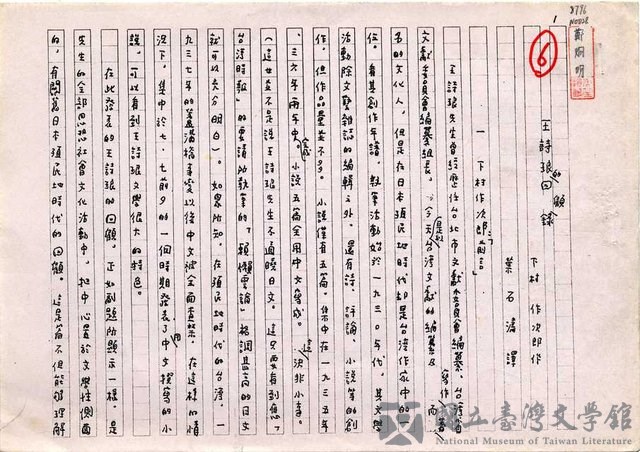 1
6
鄭烱明
王詩琅的回顧錄
下村作次郎作
葉石濤譯
一 下村作次郎「前言」
王詩琅先生曾經歷任台北市文獻委員會編纂、台灣省
文獻委員會編纂組長。今天是以台灣文獻的編纂及寫作而著
名的文化人，但是在日本殖民地時代却是台灣作家中的一
位。看其創作年譜，執筆活動始於一九三〇年代。其文學
活動除文藝雜誌的編輯之外，還有詩、評論、小說等的創
作。但作品量並不多。小說僅有五篇。集中在一九三五
、三六年兩年中。小說五篇全用中文寫成。這決非小事。
（這並不是說王詩琅先生不通曉日文。這只要看到應「
台灣時報」的要請所執筆的「賴懶雲論」格調甚高的日文
就可以充分明白）。如眾所知，在殖民地時代的台灣，一
九三七年的蘆溝橋事變以後中文被全面查禁。在這樣的情
況下，集中於七·七前夕的一個時期發表了用中文撰寫的小
說，可以看到王詩琅文學很大的特色。
在此發表的王詩琅的回顧，正如副題所顯示一樣，是
先生的全部思想社會文化活動中，把中心置於文學性側面
的，有關舊日本殖民地時代的回顧。這是篇不但能够理解
國立臺灣文學館
National Museum of Taiwan Literature